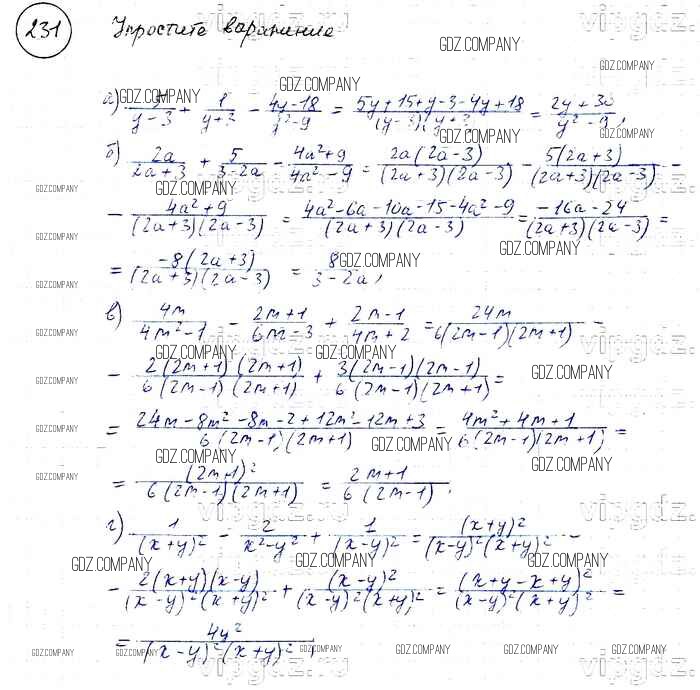 231 Упростите выражение
а) 5/(y-3) + 1/(y+3) - (4y-18)/(y²-9) = (5y+15+y-3-4y+18)/((y-3)(y+3)) = (2y+30)/(y²-9);
б) 2a/(2a+3) + 5/(3-2a) - (4a²+9)/(4a²-9) = 2a(2a-3)/((2a+3)(2a-3)) - 5(2a+3)/((2a+3)(2a-3)) -
- (4a²+9)/((2a+3)(2a-3)) = (4a²-6a-10a-15-4a²-9)/((2a+3)(2a-3)) = (-16a-24)/((2a+3)(2a-3)) =
= -8(2a+3)/((2a+3)(2a-3)) = 8/(3-2a);
в) 4m/(4m²-1) - (2m+1)/(6m-3) + (2m-1)/(4m+2) = 24m/(6(2m-1)(2m+1)) -
- 2(2m+1)(2m+1)/(6(2m-1)(2m+1)) + 3(2m-1)(2m-1)/(6(2m-1)(2m+1)) =
= (24m-8m²-8m-2+12m²-12m+3)/(6(2m-1)(2m+1)) = (4m²+4m+1)/(6(2m-1)(2m+1)) =
= (2m+1)²/(6(2m-1)(2m+1)) = (2m+1)/(6(2m-1));
г) 1/(x+y)² - 2/(x²-y²) + 1/(x-y)² = (x+y)²/((x-y)²(x+y)²) -
- 2(x+y)(x-y)/((x-y)²(x+y)²) + (x-y)²/((x-y)²(x+y)²) = (x+y-x+y)²/((x-y)²(x+y)²) =
= 4y²/((x-y)²(x+y)²);
GDZ.COMPANY
vipgdz.ru